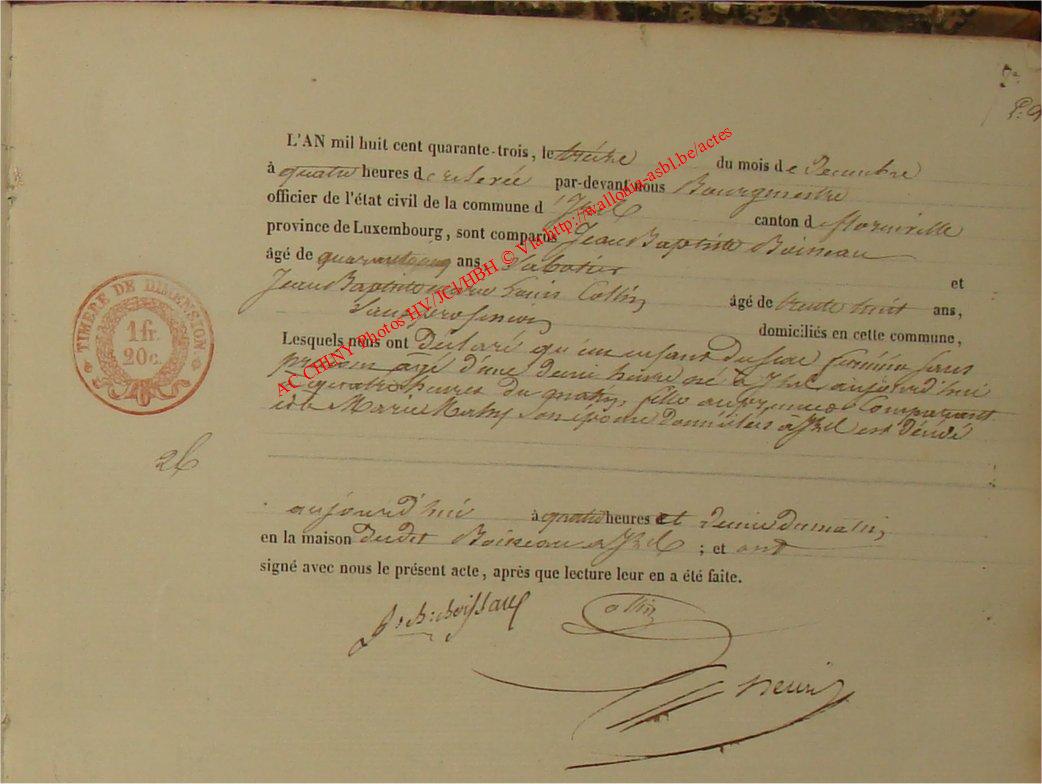 L'AN mil huit cent quarante-trois, le treize du mois de Décembre
à quatre heures de relevée par-devant nous Bourgmestre
officier de l'état civil de la commune d'Izel canton de florenville
province de Luxembourg, sont comparus Jean Baptiste Boisseau
âgé de quarante cinq ans, Sabotier et
Jean Baptiste Louis Collin âgé de trente huit ans,
domiciliés en cette commune,
Lesquels nous ont Déclaré qu'un enfant du sexe féminin sans
prénom âgé d'une demi heure né à Izel aujourd'hui
à quatre heures du matin, fille au premier Comparant
et de Marie son épouse domiciliés à Izel est décédé
26
aujourd'hui à quatre heures et demie du matin,
en la maison dudit Boisseau à Izel ; et ont
signé avec nous le présent acte, après que lecture leur en a été faite.
J. B. Boissaux
Collin
henri
TIMBRE DE DIMENSION
1 fr.
20 c.
AC CHINY Photos HV/JCl/HBH © Via http://wallonia-asbl.be/actes